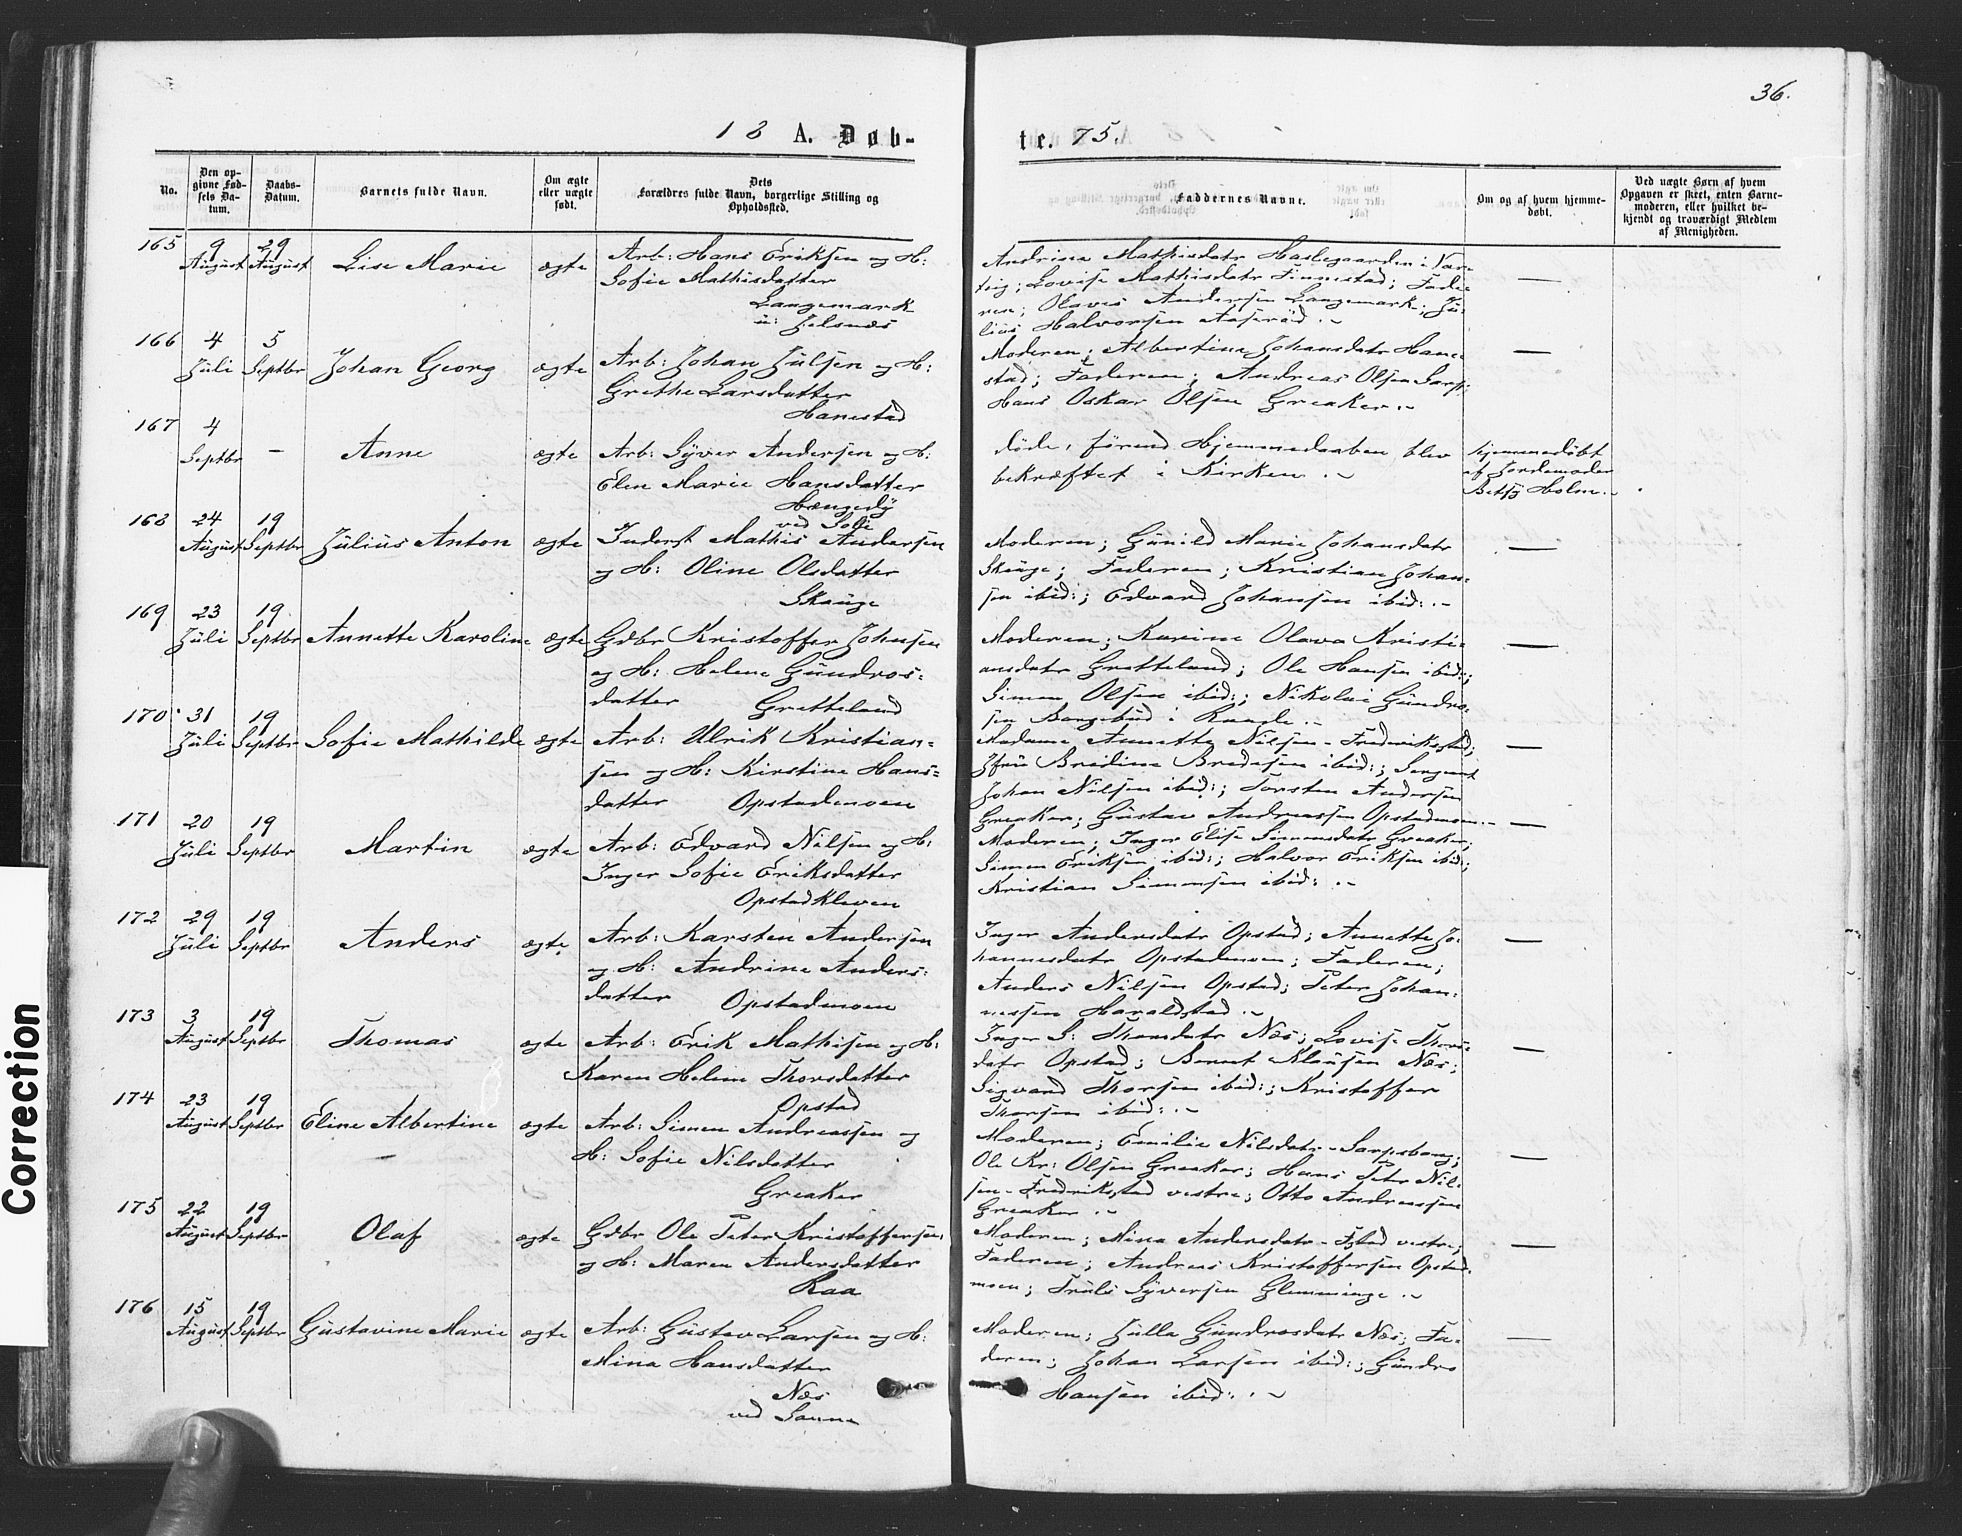 36.
18 A. Døb-
te. 75.
No.
Den op-
givne Fød-
sels Da-
tum.
Daabs-
Datum.
Barnets fulde Navn.
Om ægte
eller uægte
født.
Dets
Forældres fulde Navn, borgerlige Stilling og
Opholdssted.
Faddernes Navne.
Om og af hvem hjemme-
døbt.
Ved uægte Børn af hvem
Opgaven er skeet, enten Barne-
moderen, eller hvilket be-
kjendt og troværdigt Medlem
af Menigheden.
165 9 August 29 August Lise Marie ægte
Arb: Hans Eriksen og H:
Sofie Mathisdatter
Langemark
u: Helsnæs
Andrina Mathisdatr Haslegaarden i Var-
teig; Lovise Mathisdatr Finnestad; Fade-
ren; Olaves Andersen Langemark; Jü-
liüs Halvorsen Aaserød .~
—
166 4 Jüli 5 Septbr Johan Georg ægte
Arb: Johan Jülsen og H:
Grethe Larsdatter
Hanestad
Moderen; Albertine Johansdatr Hane-
stad; Faderen; Andreas Olsen Sarp;
Hans Oskar Olsen Greaker .~
—
167 4 Septbr - Anne ægte
Arb: Syver Andersen og H:
Elen Marie Hansdatter
Hængedy
ved Soli
døde, førend Hjemmedaaben blev
bekræftet i Kirken .~
Hjemmedøbt
af Jordemoder
Betsy Holm .~
168 24 August 19 Septbr Jüliüs Anton ægte
Inderst Mathis Andersen
og H: Oline Olsdatter
Skaüge
Moderen; Günild Marie Johansdatr
Skaüge; Faderen; Kristian Johan-
sen ibid:; Edvard Johansen ibid: .~
—
169 23 Jüli 19 Septbr Annette Karoline ægte
Gdbr Kristoffer Johnsen
og H: Helene Gündros-
datter Gretteland
Moderen; Karine Olava Kristi-
ansdatr Gretteland; Ole Hansen ibid:;
Simen Olsen ibid:; Nikolai Gündro-
sen Bangebüd i Raade .~
—
170 31 Jüli 19 Septbr Sofie Mathilde ægte
Arb: Ulrik Kristian-
sen og H: Kirstine Hans-
datter Opstadmoen
Madame Annette Nilsen - Fredrikstad;
Jfrü Bredine Bredesen ibid:; Sergeant
Johan Nilsen ibid:; Torsten Andersen
Greaker; Güstav Andreassen Opstadmoen .~
—
171 20 Jüli 19 Septbr Martin ægte
Arb: Edvard Nilsen og H:
Inger Sofie Eriksdatter
Opstadkleven
Moderen; Inger Elise Simensdatr Greaker;
Simen Eriksen ibid:; Halvor Eriksen ibid:;
Kristian Simensen ibid: .~
—
172 29 Jüli 19 Septbr Anders ægte
Arb: Karsten Andersen
og H: Andrine Anders-
datter Opstadmoen
Inger Andersdatr Opstad; Annette Jo-
hannesdatr Opstadmoen; Faderen;
Anders Nilsen Opstad; Peter Johan-
nessen Haraldstad .~
—
173 3 August 19 Septbr Thomas ægte
Arb: Erik Mathisen og H:
Karen Helene Thorsdatter
Opstad
Inger S: Thorsdatr Næs; Lovise Thors-
datr Opstad; Bernt Klaüsen Næs;
Sigvard Thorsen ibid:; Kristoffer
Thorsen ibid: .~
—
174 23 August 19 Septbr Eline Albertine ægte
Arb: Simen Andreassen og
H: Sofie Nilsdatter
Greaker
Moderen; Emilie Nilsdatr - Sarpsborg;
Ole Kr: Olsen Greaker; Hans Peter Nil-
sen - Fredrikstad vestre; Otto Andreassen
Greaker .~
—
175 22 August 19 Septbr Olaf ægte
Gdbr Ole Peter Kristoffersen
og H: Maren Andersdatter
Raa
Moderen; Mina Andersdatr - Fstad vestre;
Faderen; Andreas Kristoffersen Opstad-
moen; Trüls Syversen Glemminge .~
—
176 15 August 19 Septbr Güstavine Marie ægte
Arb: Güstav Larsen og H:
Mina Hansdatter
Næs
ved Sanne
Moderen; Jülla Gündrosdatr Næs; Fa-
deren; Johan Larsen ibid:; Gündro
Hansen ibid: .~
—
Correction